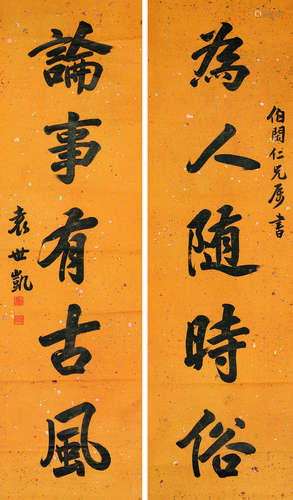 為人隨時俗
伯閣仁兄屬書
論事有古風
袁世凱